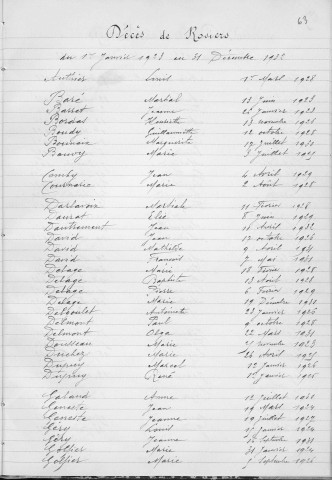 63
Décès de Rosiers
du 1er Janvier 1923 au 31 Décembre 1932
Louis 1er Mars 1928
Baré Martial 13 Juin 1923
Barret Jeanne 22 Janvier 1923
Bordas 13 novembre 1928
Boudy Guillaumette 12 octobre 1928
Marguerite 17 Juillet 1931
Marie 3 Juillet 1927
Comby Jean 6 Avril 1929
Marie 2 Août 1928
11 Février 1926
Daurat Elie 8 Juin 1929
Jean 16 Avril 1932
David Jean 12 octobre 1926
David Mathilde 9 Avril 1931
David François 7 Mai 1931
Delage Marie 18 Février 1928
Delage Baptiste 13 Août 1928
Delage Pierre 6 Février 1929
Delage Marie 19 Décembre 1931
Antoinette 23 Janvier 1926
Delmont Paul 9 octobre 1928
Delmont Olga 12 Mars 1931
Marie 21 novembre 1923
Marie 26 Avril 1927
Dupuy Marcel 12 Janvier 1926
Dupuy René Janvier 1926
Galand Anna 12 Juillet 1928
Geneste Jean 19 Mars 1924
Geneste Jeanne 19 Juillet 1927
Géry Louis Janvier 1924
Géry Jeanne octobre 1931
Golfier Marie 31 Janvier 1924
Golfier Marie 7 Septembre 1926